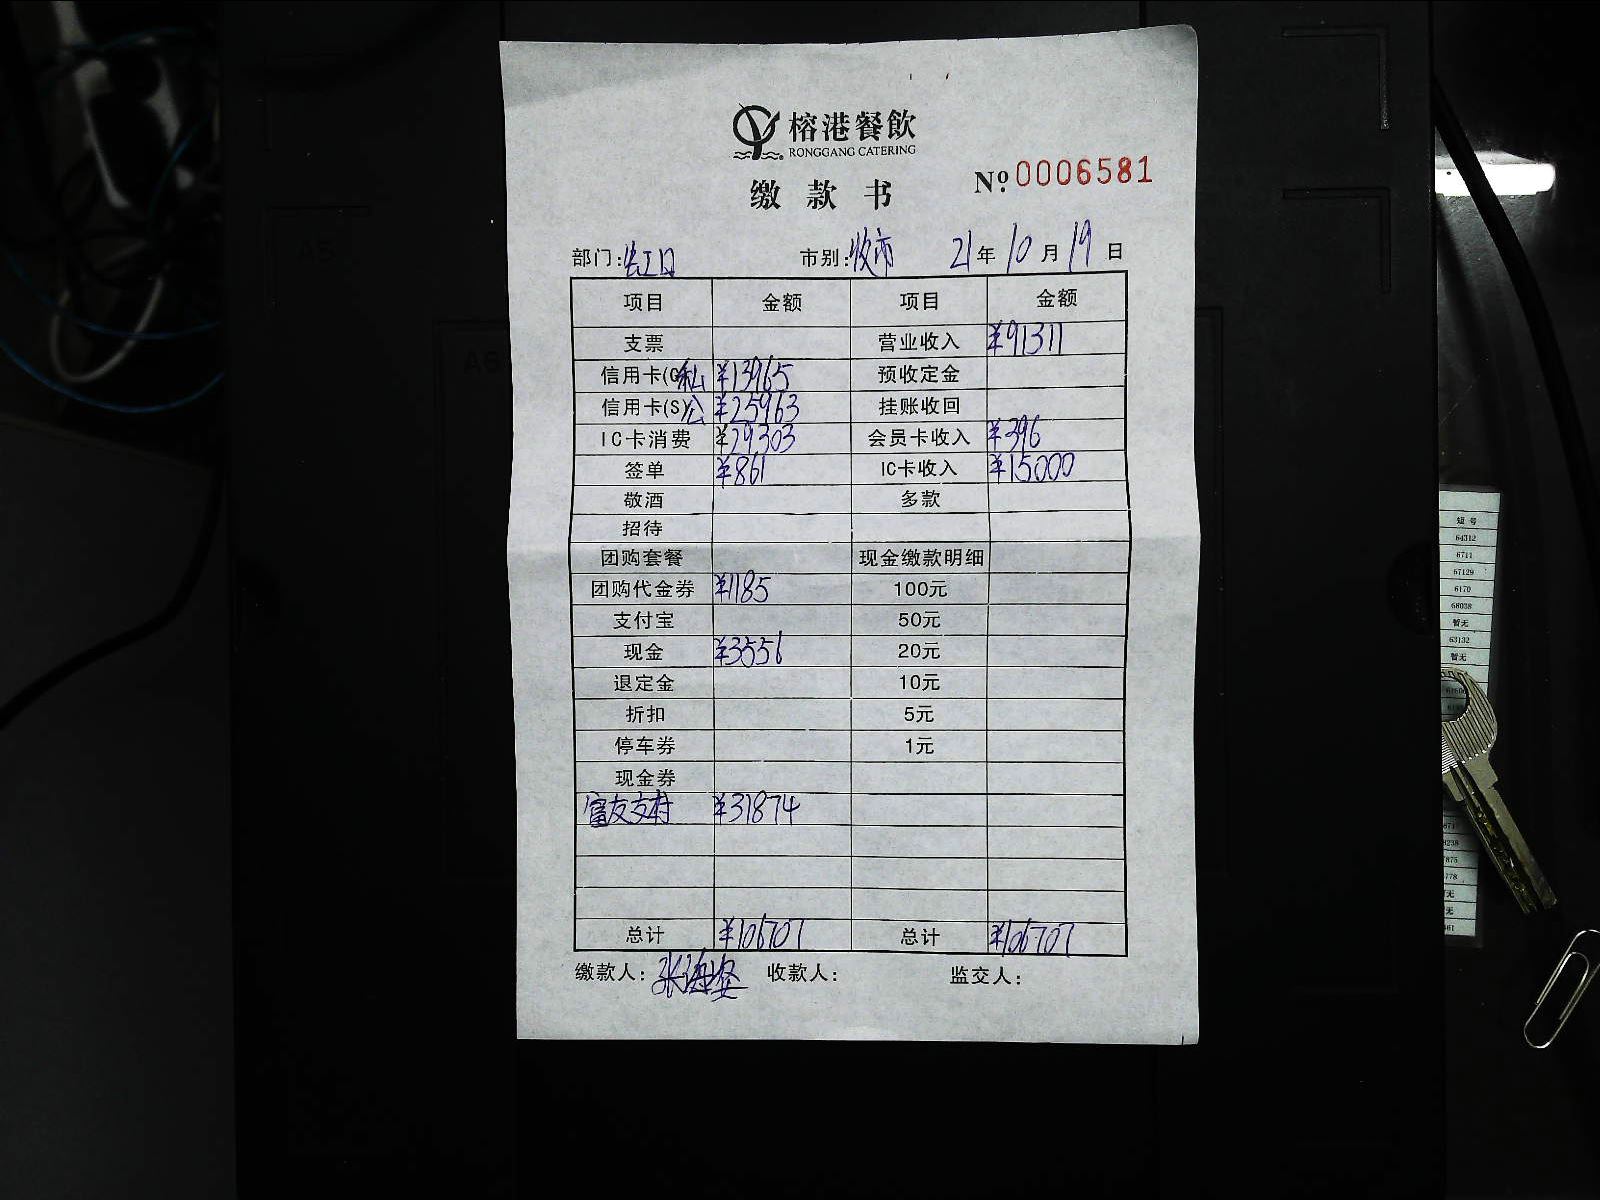 榕港餐飲
RONGGANG CATERING
缴款书 Nº 0006581
部门: 市别: 收市 21年10月19日
项目 金额 项目 金额
支票 营业收入 ¥91311
信用卡(C 私 ¥13965 预收定金
信用卡(S) 公 ¥25963 挂账收回
IC卡消费 ¥29303 会员卡收入 ¥396
签单 ¥861 IC卡收入 ¥15000
敬酒 多款
招待
团购套餐 现金缴款明细
团购代金券 ¥1185 100元
支付宝 50元
现金 ¥3556 20元
退定金 10元
折扣 5元
停车券 1元
现金券
富友支付 ¥31874
总计 ¥106707 总计 ¥106707
缴款人: 张海 收款人: 监交人:
A5
短号
64312
6711
67129
6170
68038
暂无
63132
暂无